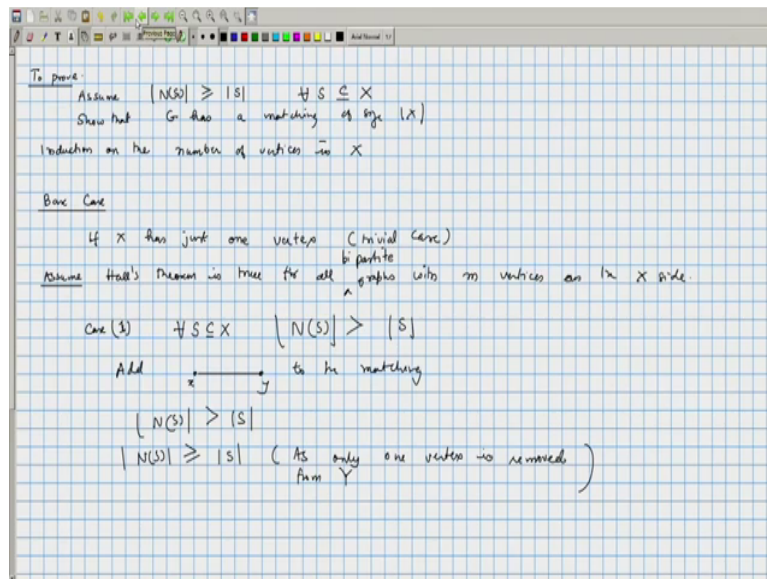 To prove.
Assume |N(S)| ≥ |S| ∀ S ⊆ X
Show that G has a matching of size |X|
Induction on the number of vertices in X
Base Case
If X has just one vertex (trivial case)
bipartite
Assume Hall's Theorem is true for all ^ graphs with m vertices on X side.
Case (1) ∀ S ⊆ X |N(S)| > |S|
Add to the matching
x y
|N(S)| > |S|
|N(S)| ≥ |S| (As only one vertex is removed
from Y)